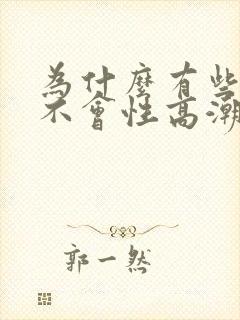 為什麼有些
不會性高潮
郭一然